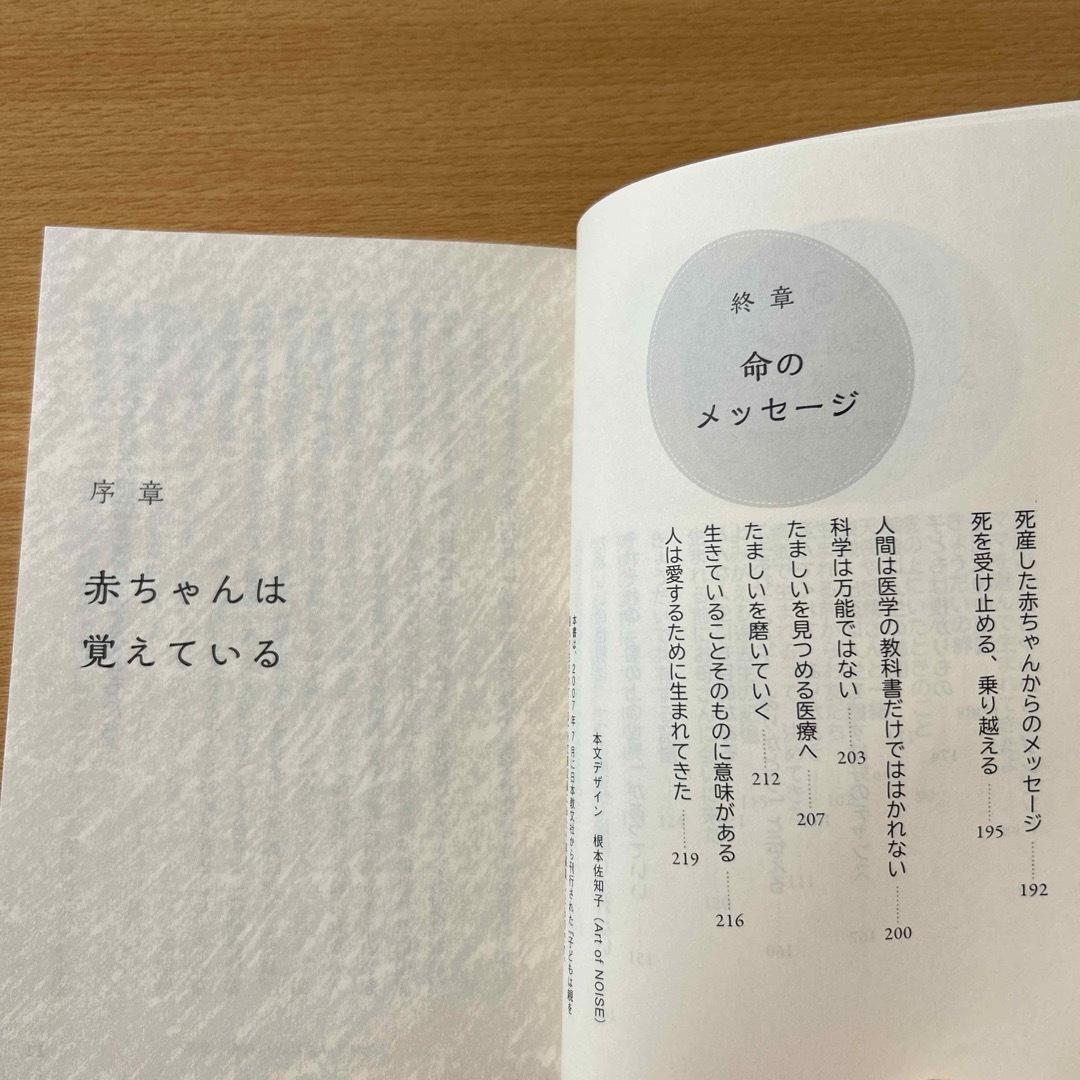 終章
命の
メッセージ
死産した赤ちゃんからのメッセージ 192
死を受け止める、乗り越える 195
人間は医学の教科書だけでははかれない 200
科学は万能ではない 203
たましいを見つめる医療へ 207
たましいを磨いていく 212
生きていることそのものに意味がある 216
人は愛するために生まれてきた 219
本文デザイン 根本佐知子(Art of NOISE)
本書は、2007年7月に日本教文社から刊行された『子どもは親を
序章
赤ちゃんは
覚えている